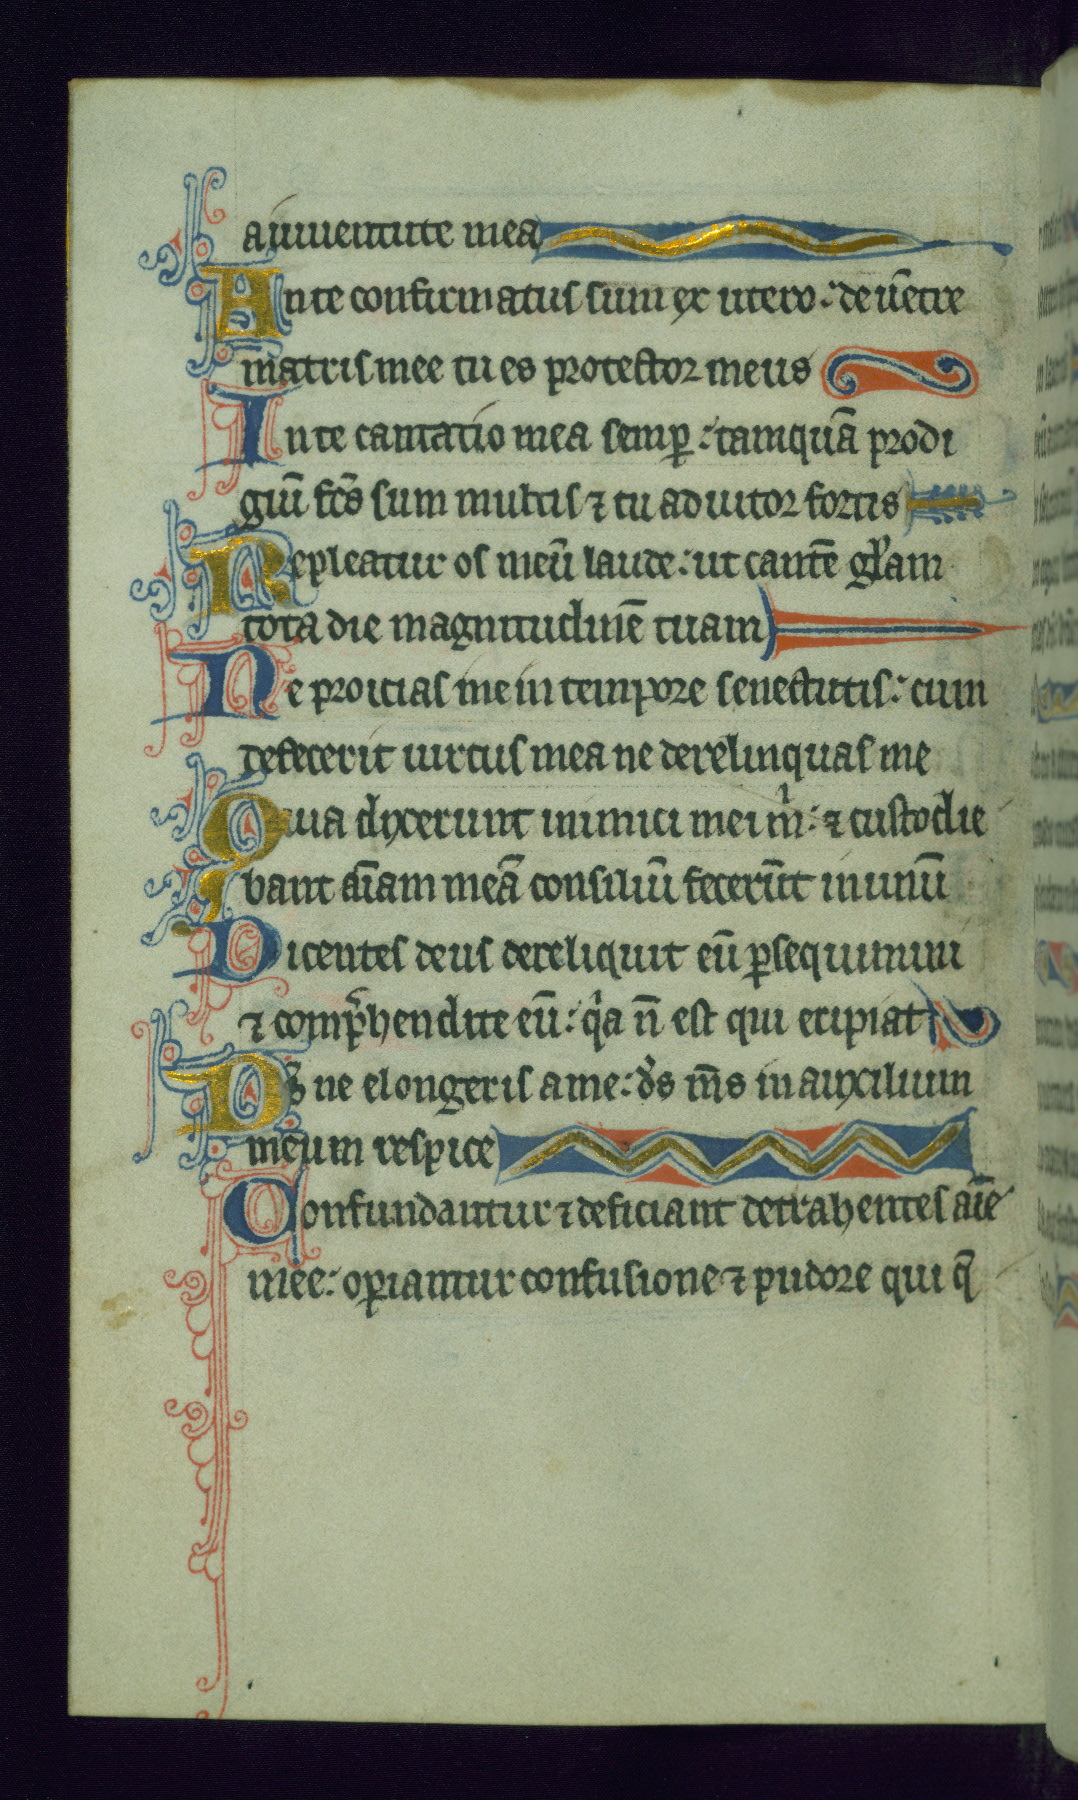 a iuuentute mea
In te confirmatus sum ex utero: de uētre
matris mee tu es protector meus
In te cantatio mea semp̱: tamquā prodi
giū fcs̄ sum multis ⁊ tu adiutor fortis
Repleatur os meū laude: ut cantē gl̄am
tota die magnitudinē tuam
Ne proicias me in tempore senectutis: cum
defecerit uirtus mea ne derelinquas me
Quia dixerunt inimici mei m̄: ⁊ custodie
bant aīam meā consiliū fecerūt inunū
Dicentes deus dereliquit eū ꝑsequimini
⁊ comp̄hendite eū: qͥa n̄ est qui eripiat
Ds̄ ne elongeris a me: ds̄ m̄s in auxilium
meum respice
Confundantur ⁊ deficiant detrahentes aīe
mee: oꝑiantur confusione ⁊ pudore qui q̄